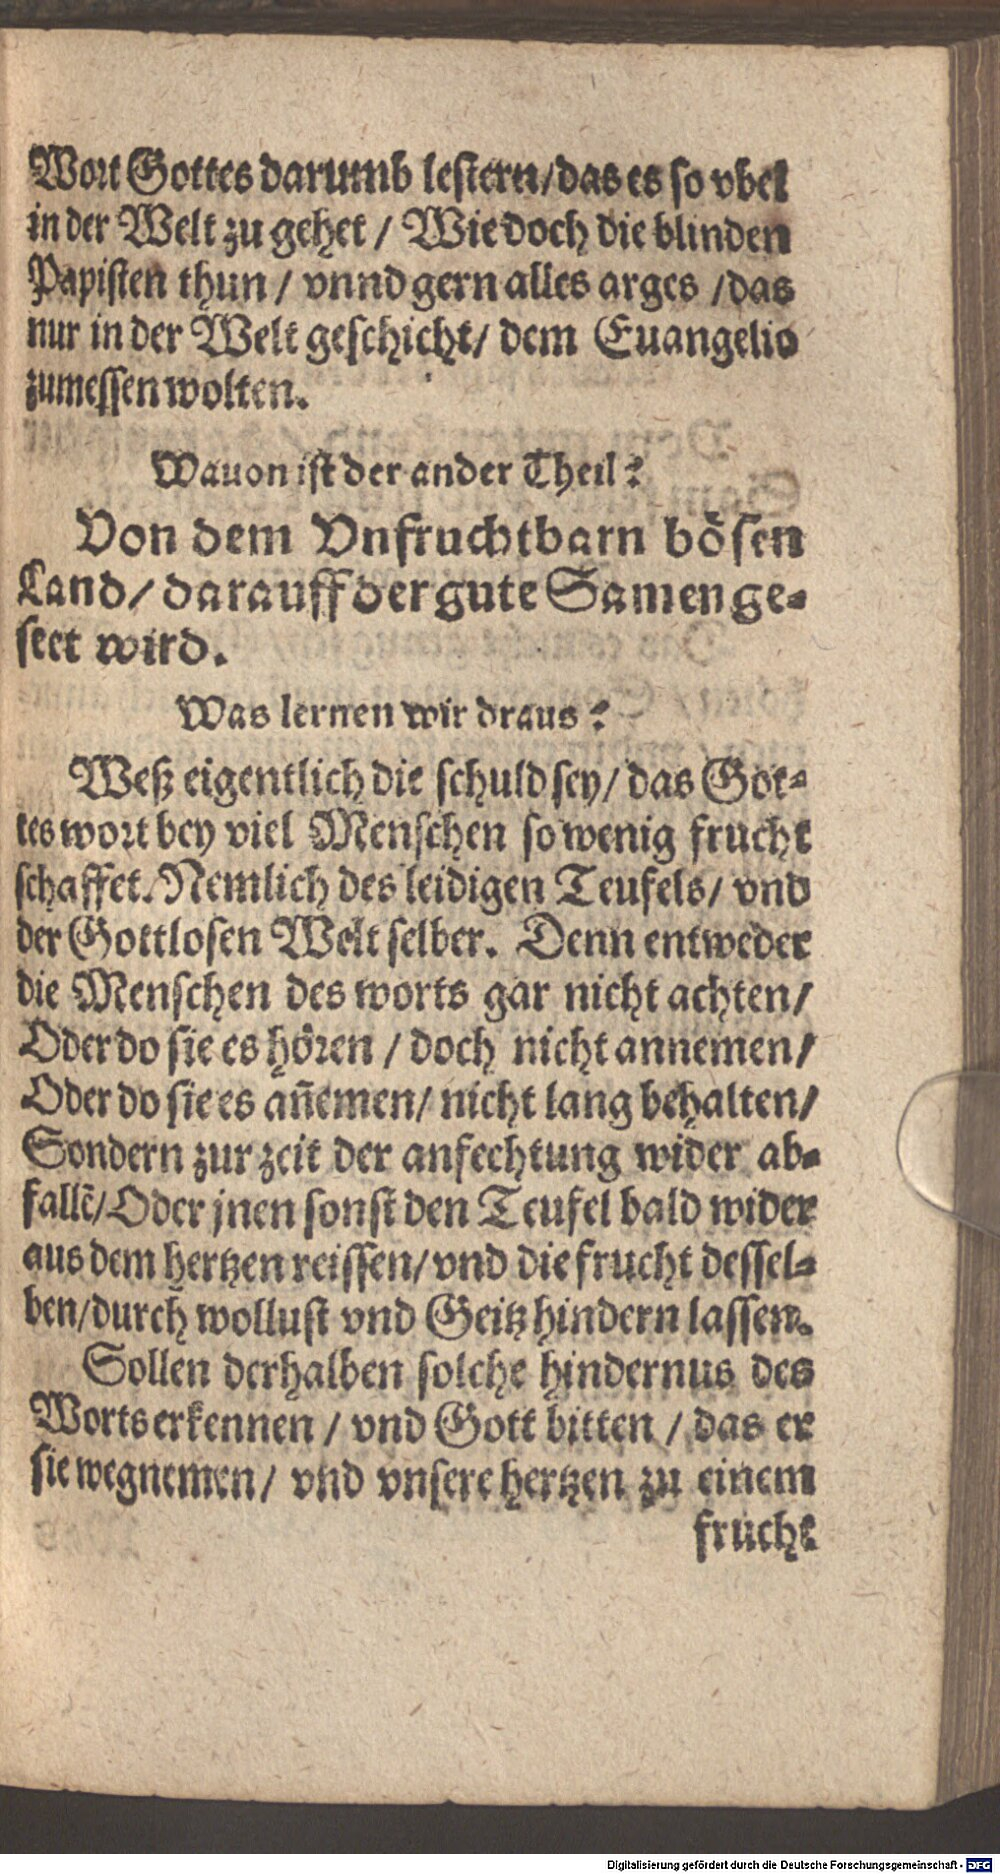 Wort Gottes darumb lestern/das es so vbel
in der Welt zu gehet / Wie doch die blinden
Papisten thun / vnnd gern alles arges /das
nur in der Welt geschicht/ dem Euangelio
zumessen wolten.
Wauon ist der ander Theil?
Von dem Vnfruchtbarn bösen
Land/ darauff der gute Samen ge-
seet wird.
Was lernen wir draus?
Weß eigentlich die schuld sey/ das Got-
tes wort bey viel Menschen so wenig frucht
schaffet. Nemlich des leidigen Teufels/ vnd
der Gottlosen Welt selber. Denn entweder
die Menschen des worts gar nicht achten/
Oder do sie es hören / doch nicht annemen/
Oder do sie es an̄emen/ nicht lang behalten/
Sondern zur zeit der anfechtung wider ab-
fallē/ Oder jnen sonst den Teufel bald wider
aus dem hertzen reissen/ vnd die frucht dessel-
ben/durch wollust vnd Geitz hindern lassen.
Sollen derhalben solche hindernus des
Worts erkennen / vnd Gott bitten / das er
sie wegnemen/ vnd vnsere hertzen zu einem
frucht
Digitalisierung gefördert durch die Deutsche Forschungsgemeinschaft - DFG